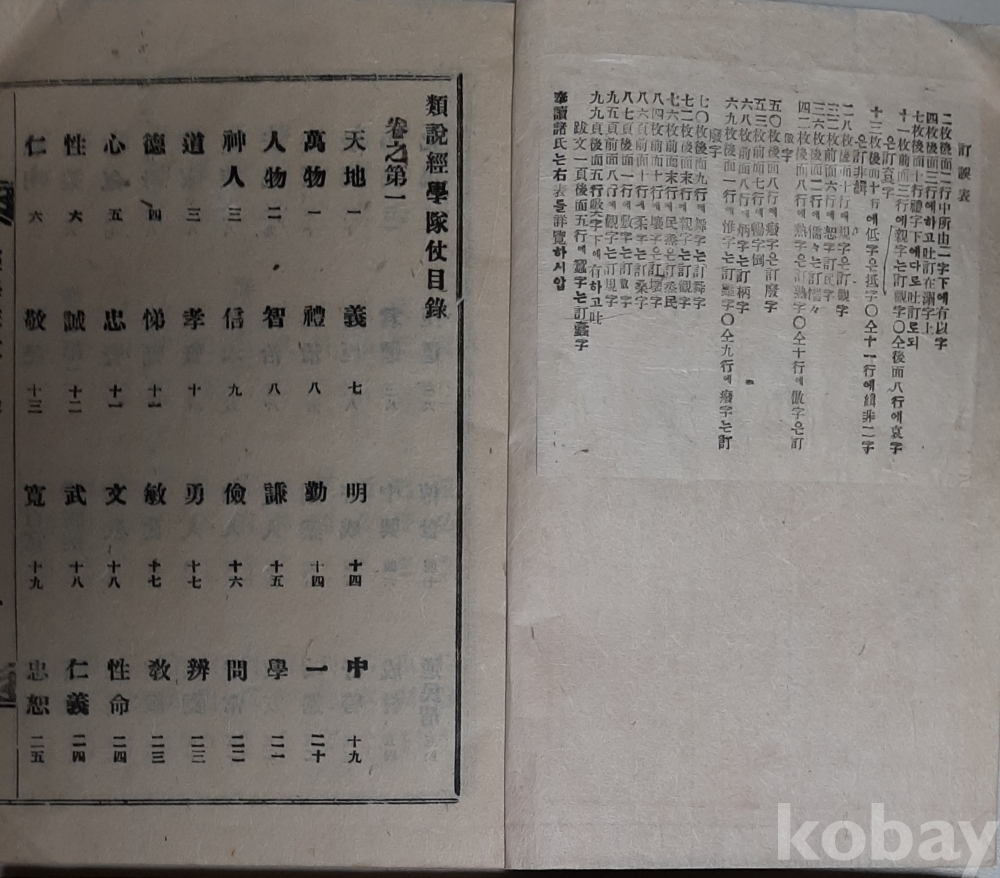 訂誤表
二枚後面一行中所由二字下에有以字
四枚後面三行에하고吐訂在溺字上
七枚後面十行禮字下에다로吐訂로되
十一枚前面三行에親字는訂觀字〇仝後面八行에哀字
은訂袁字
十三枚後面十行에低字은抵字〇仝十一行에緝非二字
은訂非緝
二八枚後面十行에規字은訂觀字
三二枚前面六行에恕字訂民字
三六枚後面二行에儒々는訂懦々
四二枚後面八行에熱字은訂熟字〇仝十行에傲字은訂
五〇枚後面八行에癈字은訂廢字
五三枚前面七行에暢字倒
六八枚前面八行에炳字은訂柄字
六九枚後面一行에惟字는訂離字〇仝九行에癈字는訂
七〇枚後面九行에舞字는訂舜字
七二枚後面末行에親字는訂觀字
七六枚前面末行에民烝은訂烝民
八四枚前面十行에壞字은訂壤字
八六頁前面十行에柔字는訂桑字
八七頁後面一行에敷字는訂
九五頁前面八行에觀字는訂規字
九九頁後面五行殷字下에有하고吐
跋文一頁後面五行에
奉讀諸氏는右表를詳覽하시압
類說經學隊仗目錄
卷之第一
天地 一 義 七 明 十四 中 十九
萬物 一 禮 八 勤 十四 一 二十
人物 二 智 八 謙 十五 學 二一
神人 三 信 九 儉 十六 問 二二
道 三 孝 十 勇 十七 辨 二三
德 四 悌 十一 敏 十七 敎 二三
心 五 忠 十一 文 十八 性命 二四
性 六 誠 十二 武 十八 仁義 二四
仁 六 敬 十三 寬 十九 忠恕 二五
kobay